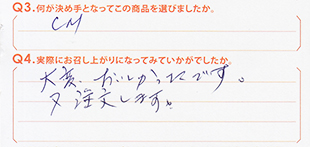 Q3.何が決め手となってこの商品を選びましたか。
CM
Q4.実際にお召し上がりになってみていかがでしたか。
大変、おいしかったです。
又注文します。